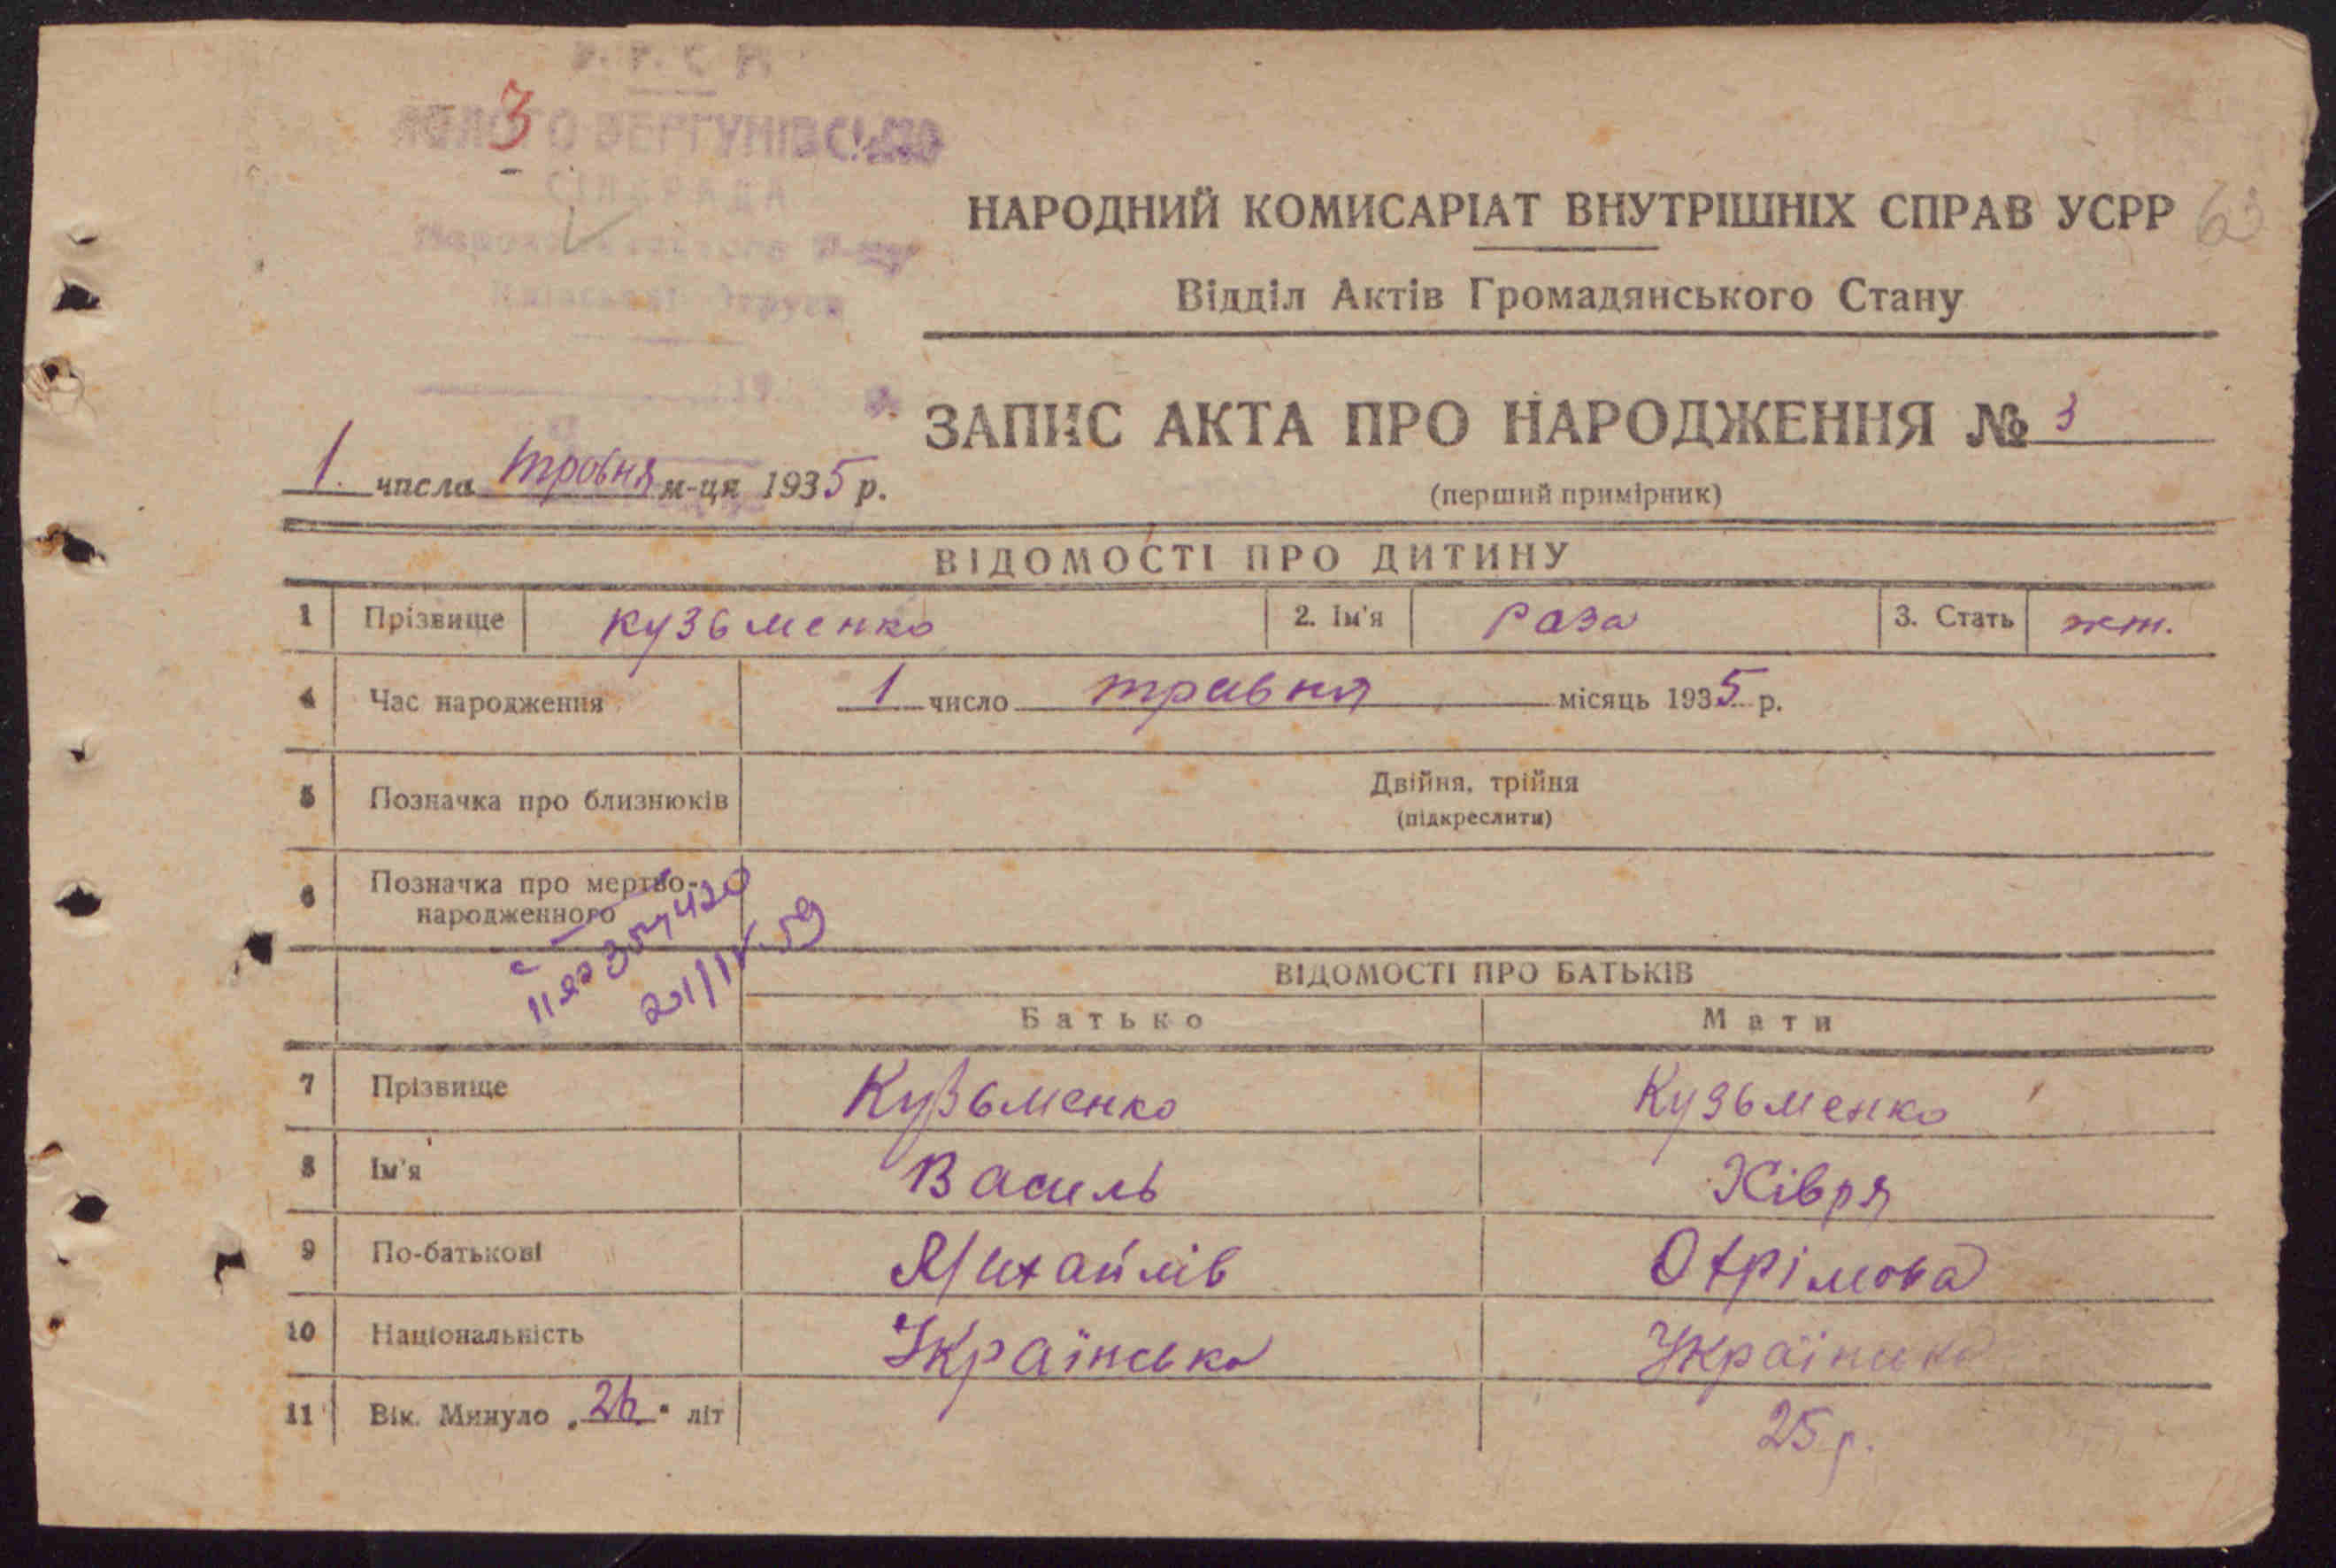 У. Р. С. Р.
3
СІЛЬРАДА
НАРОДНИЙ КОМИСАРІАТ ВНУТРІШНІХ СПРАВ УСРР 63
Відділ Актів Громадянського Стану
ЗАПИС АКТА ПРО НАРОДЖЕННЯ № 3
1. числа травня м-ця 1935 р.
(перший примірник)
ВІДОМОСТІ ПРО ДИТИНУ
1 Прізвище Кузьменко 2. Ім'я Раза 3. Стать жін.
4 Час народження 1 число травня місяць 1935 р.
5 Позначка про близнюків Двійня, трійня
(підкреслити)
6 Позначка про мертво-
народженного
ВІДОМОСТІ ПРО БАТЬКІВ
Батько Мати
7 Прізвище Кузьменко Кузьменко
8 Ім'я Василь Хівря
9 По-батькові Михайлів
10 Національність Українська Українка
11 Вік. Минуло „26" літ 25 р.